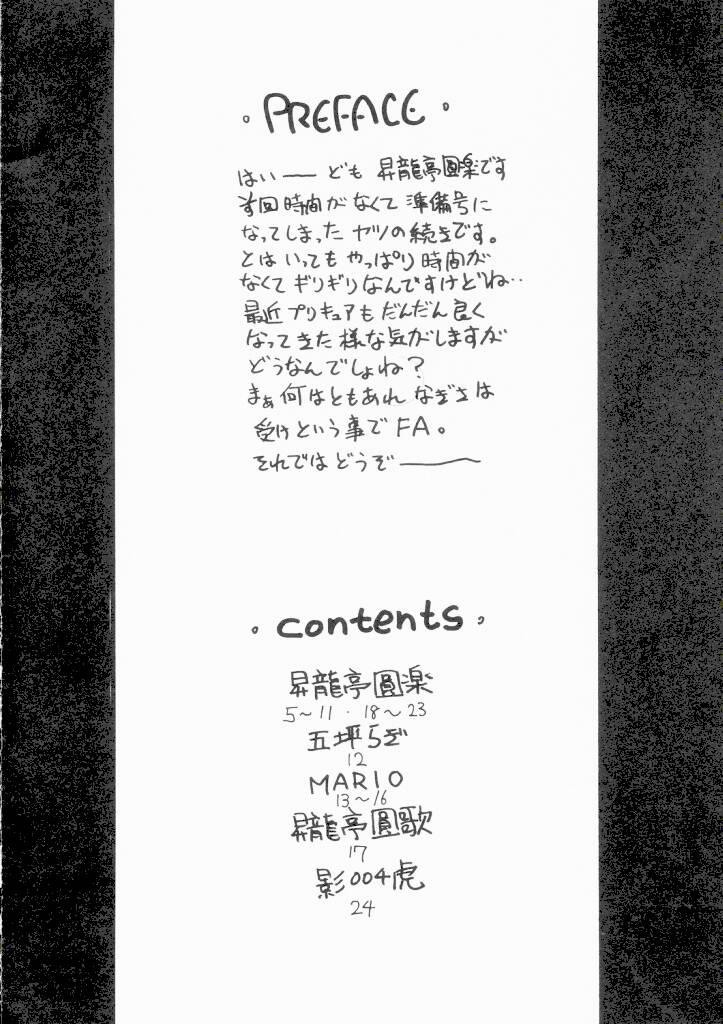 ・PREFACE・
はいーども 昇龍亭圓楽です
す回時間がなくて 準備号に
なってしまった ヤツの続きです。
とは いっても やっぱり 時間が
なくて ギリギリなんですけどね‥
最近 プリキュアも だんだん 良く
なって きた 様な気がしますが
どうなんでしょね？
まぁ 何はともあれ なぎさは
受け という事で FA。
それでは どうぞ――
。contents 。
昇龍亭圓楽
5～11・18～23
五坪らぎ
12
MARIO
13～16
昇龍亭圓歌
17
影004虎
24